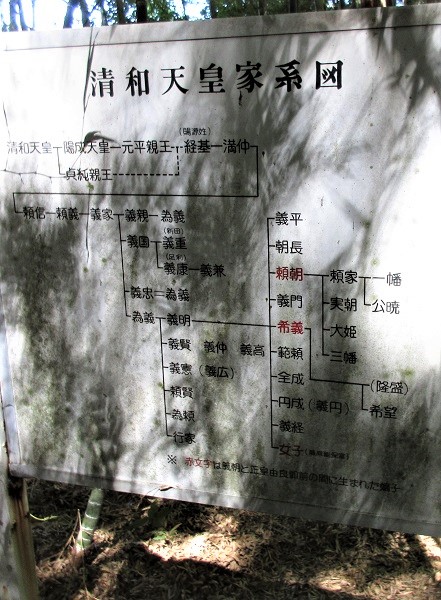 清和天皇家系図
(賜源姓)
清和天皇 陽成天皇 元平親王 経基 満仲
貞純親王
頼信 頼義 義家 義親 為義
(新田)
義国 義重
(足利)
義康 義兼
義忠 為義
為義 義明
義賢 義仲 義高
義憲 (義広)
頼賢
為頼
行家
義平
朝長
頼朝 頼家 一幡
義門 実朝 公暁
希義 大姫
範頼 三幡
全成 (隆盛)
円成 (義円) 希望
義経
女子
※ 赤文字は頼朝と正室由良御前の間に生まれた嫡子